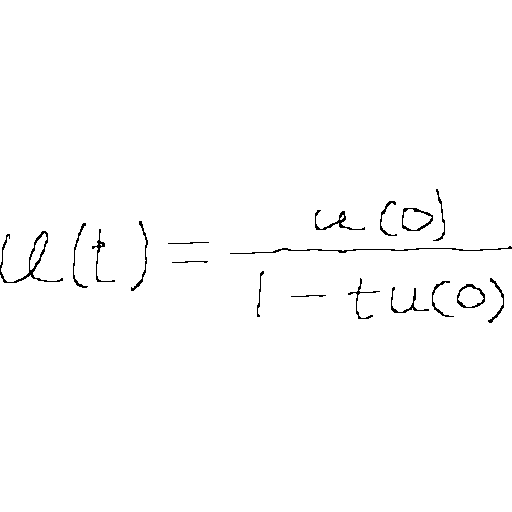 u(t) = \frac{u(0)}{1 - tu(0)}